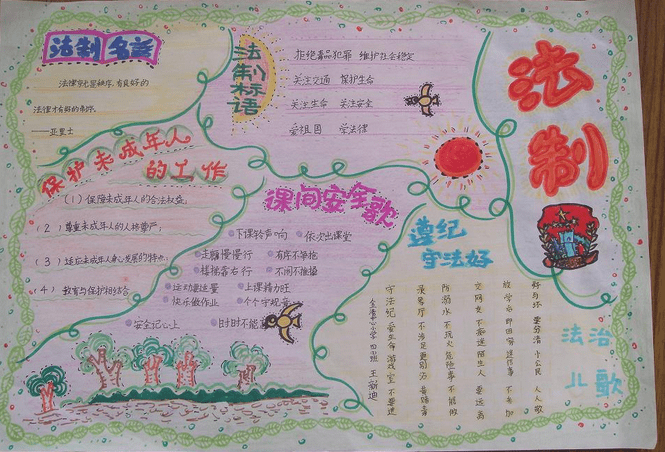 法制名言
法律就是秩序,有良好的
法律才有好的秩序。
——亚里士
法制标语
拒绝毒品犯罪 维护社会稳定
关注交通 保护生命
关注生命 关注安全
爱祖国 学法律
法制
保护未成年人
的工作
(1)保障未成年人的合法权益;
(2)尊重未成年人的人格尊严;
(3)适应未成年人身心发展的特点;
(4)教育与保护相结合
课间安全歌
下课铃声响 依次出课堂
走廊慢慢行 有序不争抢
楼梯靠右行 不闹不推搡
运动要适量 上课精力旺
快乐做作业 个个守规章
安全记心上 时时不能忘
遵纪
守法好
法治
儿歌
好与坏 要分清 小公民 人人敬
放学后 即回家 送作事 不参加
交网友 不 陌生人 要远离
防溺水 不玩火 危险事 不能做
录像厅 不涉足 更别
守法纪 爱生命 游戏室 不要进
小学 四班 王